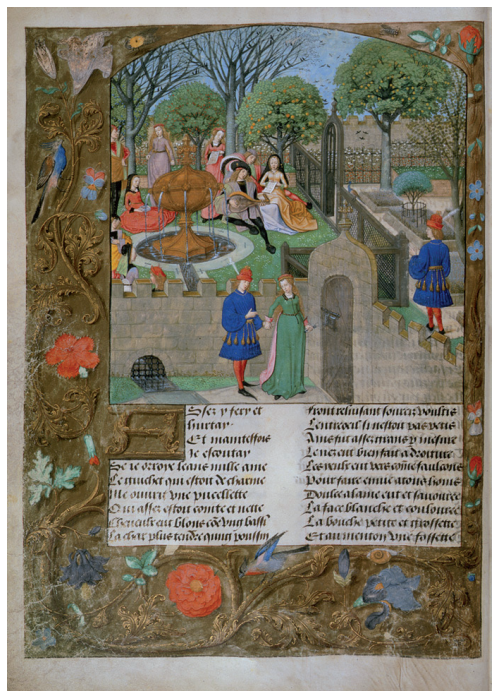 Assez y fery et
hurtay
Et maintesfois
Ie escoutay
Se ie orroye leans mille ame
Le guichet qui estoit de charme
Me ouurit vne pucellette
Qui assez estoit cointe et nette
Cheueulx eut blons cõe vng bassi
La char plus tendre quung poussin
Front reluisant sourcil voultis
Lentroeil si nestoit pas petis
Ains fut assez grans par mesure
Le nez eut bien fait a droiture
Les yeulx eut vers cõme faulcons
Pour faire enuie a tous homs
Doulce alaine eut et sauouree
La face blanche et coulouree
La bouche petite et grossette
Et au menton vne fossette